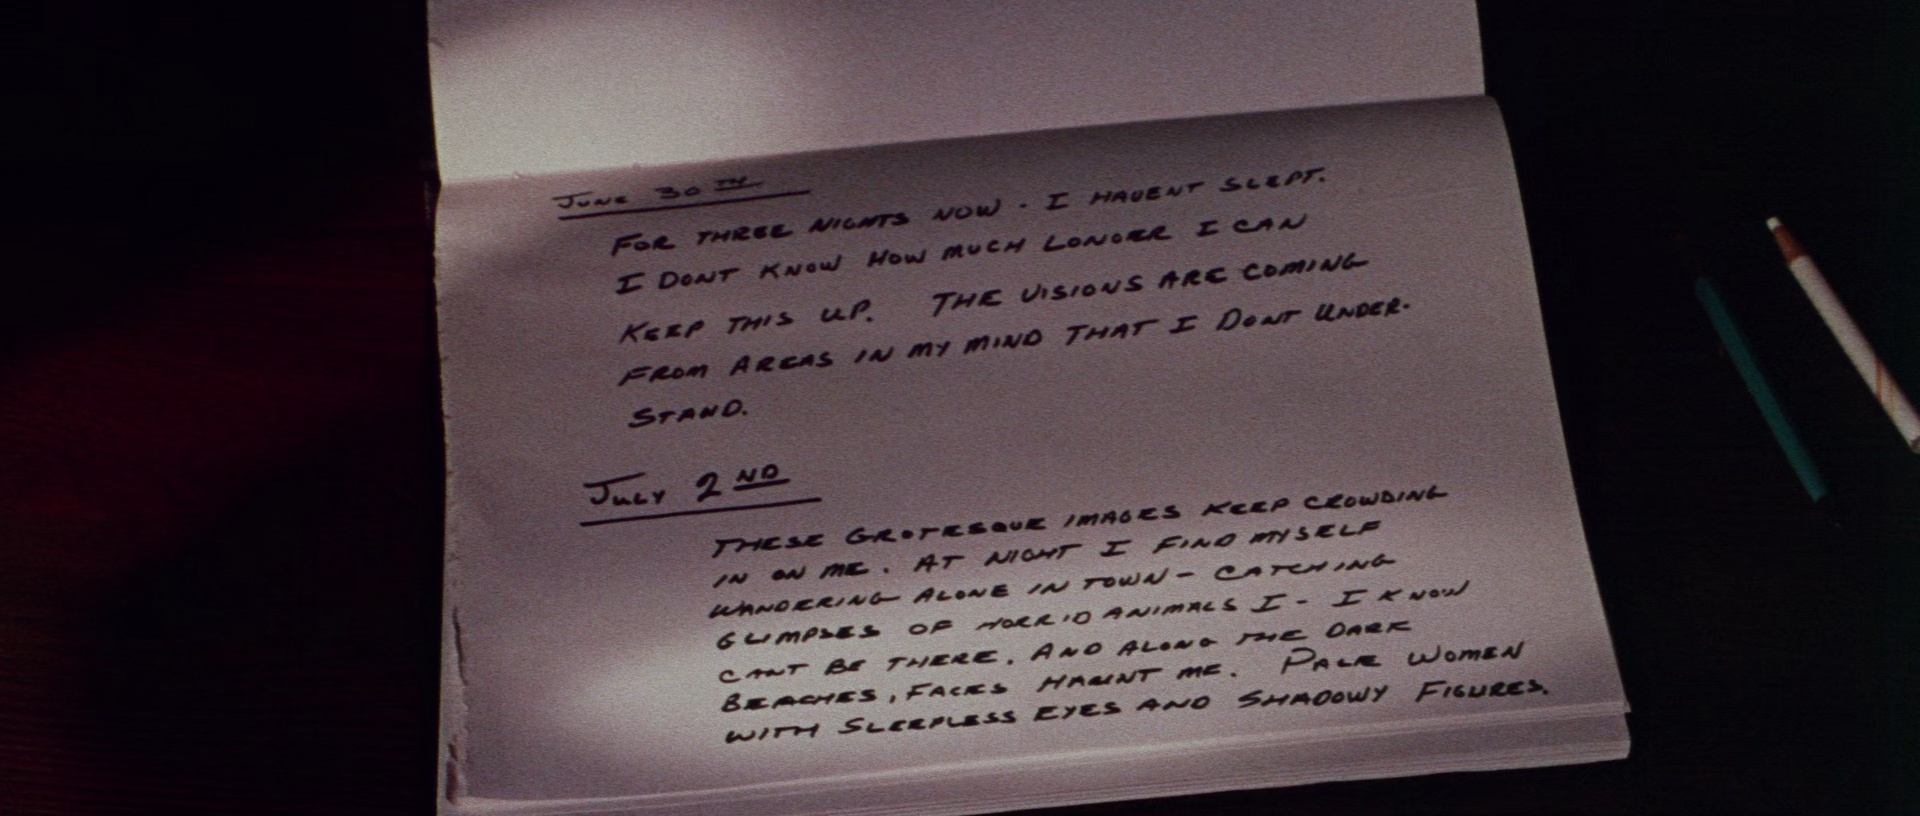 JUNE 30TH
FOR THREE NIGHTS NOW. I HAVENT SLEPT.
I DONT KNOW HOW MUCH LONGER I CAN
KEEP THIS UP. THE VISIONS ARE COMING
FROM AREAS IN MY MIND THAT I DONT UNDER-
STAND.
JULY 2ND
THESE GROTESQUE IMAGES KEEP CROWDING
IN ON ME. AT NIGHT I FIND MYSELF
WANDERING ALONE IN TOWN - CATCHING
GLIMPSES OF HORRID ANIMALS I - I KNOW
CANT BE THERE. AND ALONG THE DARK
BEACHES, FACES HAUNT ME. PALE WOMEN
WITH SLEEPLESS EYES AND SHADOWY FIGURES.